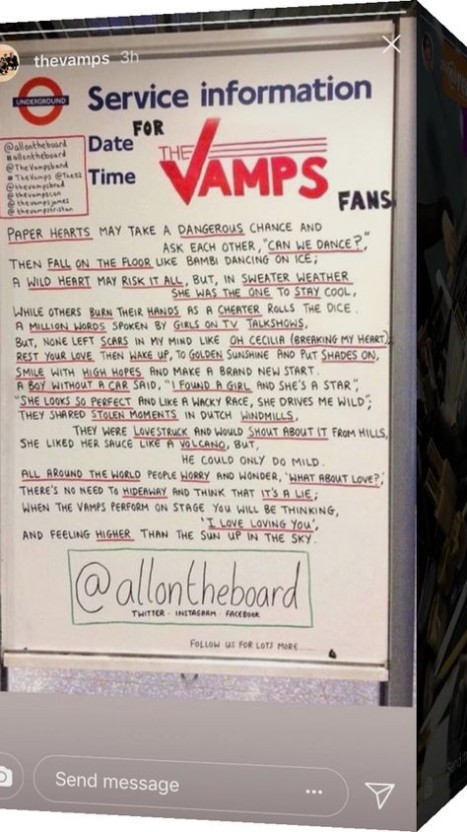 thevamps 3h
UNDERGROUND
Service information
Date FOR
Time
THE VAMPS
FANS
@allontheboard
#allontheboard
@TheVampsband
@thevampsbrad
@thevampscon
@thevampsjames
@thevampstristan
PAPER HEARTS MAY TAKE A DANGEROUS CHANCE AND
ASK EACH OTHER, "CAN WE DANCE?",
THEN FALL ON THE FLOOR LIKE BAMBI DANCING ON ICE;
A WILD HEART MAY RISK IT ALL, BUT, IN SWEATER WEATHER
SHE WAS THE ONE TO STAY COOL,
WHILE OTHERS BURN THEIR HANDS AS A CHEATER ROLLS THE DICE.
A MILLION WORDS SPOKEN BY GIRLS ON TV TALKSHOWS,
BUT, NONE LEFT SCARS IN MY MIND LIKE OH CECILIA (BREAKING MY HEART).
REST YOUR LOVE THEN WAKE UP, TO GOLDEN SUNSHINE AND PUT SHADES ON,
SMILE WITH HIGH HOPES AND MAKE A BRAND NEW START.
A BOY WITHOUT A CAR SAID, "I FOUND A GIRL AND SHE'S A STAR",
"SHE LOOKS SO PERFECT AND LIKE A WACKY RACE, SHE DRIVES ME WILD";
THEY SHARED STOLEN MOMENTS IN DUTCH WINDMILLS,
THEY WERE LOVESTRUCK AND WOULD SHOUT ABOUT IT FROM HILLS,
SHE LIKED HER SAUCE LIKE A VOLCANO, BUT,
HE COULD ONLY DO MILD.
ALL AROUND THE WORLD PEOPLE WORRY AND WONDER, 'WHAT ABOUT LOVE?',
THERE'S NO NEED TO HIDEAWAY AND THINK THAT IT'S A LIE;
WHEN THE VAMPS PERFORM ON STAGE YOU WILL BE THINKING,
'I LOVE LOVING YOU',
AND FEELING HIGHER THAN THE SUN UP IN THE SKY.
@allontheboard
TWITTER · INSTAGRAM · FACEBOOK
FOLLOW US FOR LOTS MORE
Send message